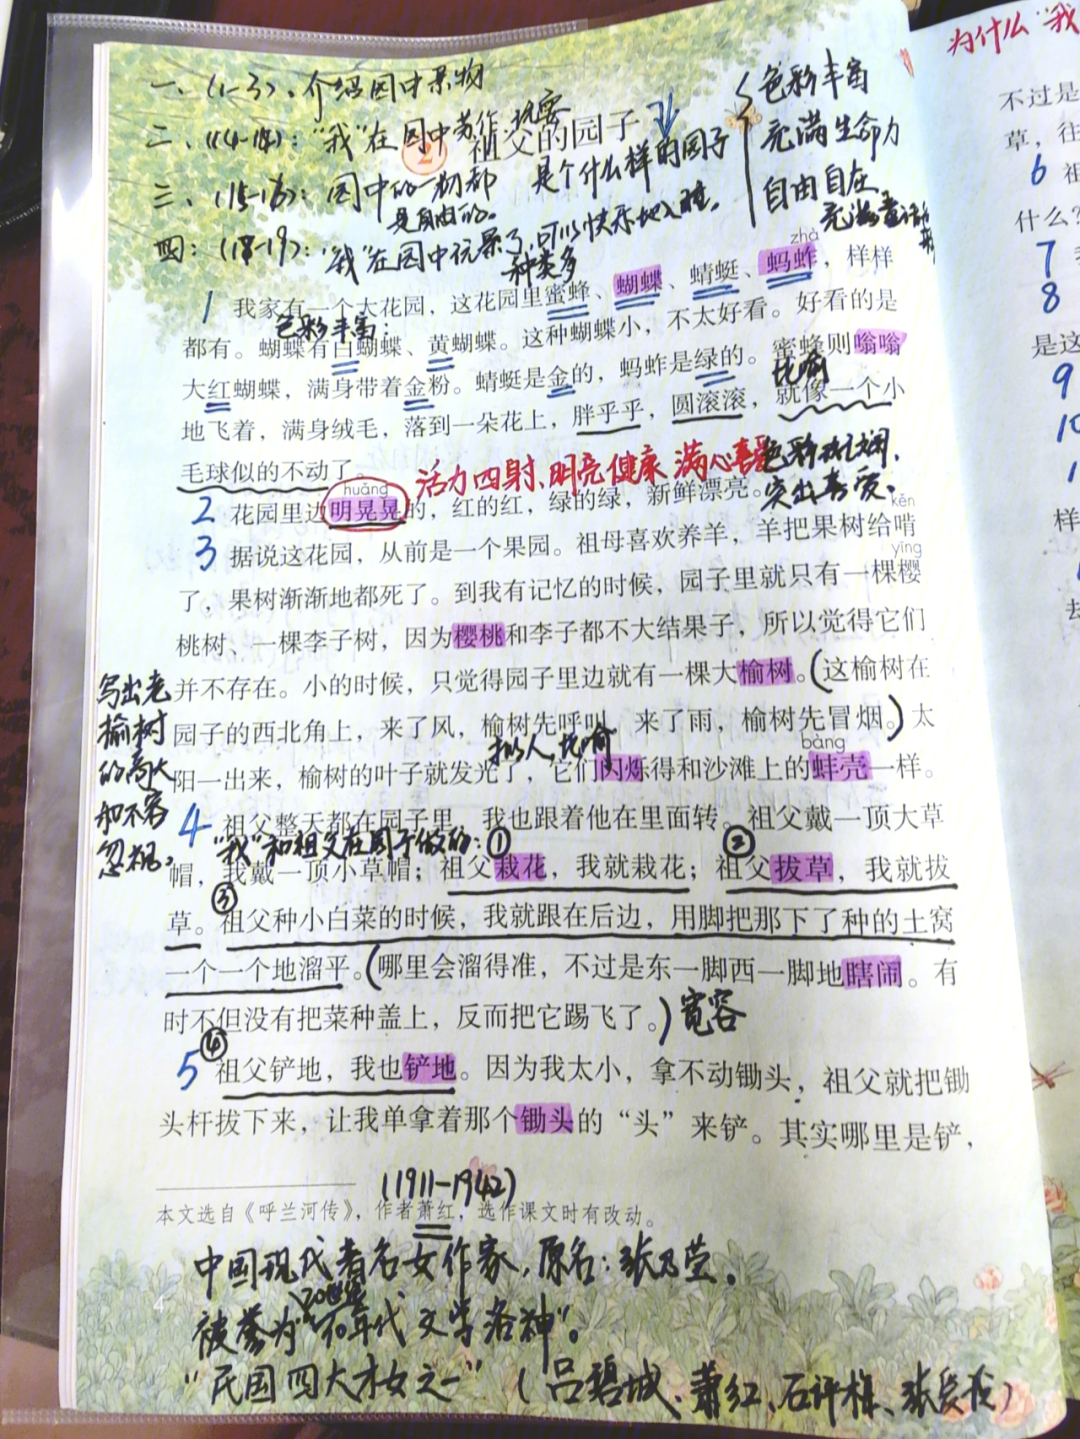 一、(1-3)、介绍园中景物
二、(4-14)："我"在园中劳作、玩耍
三、(15-16)：园中的一切都
是自由的。
四：(17-19)："我"在园中玩累了，可以快乐地入睡。
2 祖父的园子
是个什么样的园子
色彩丰富
充满生命力
自由自在
充满童话的
种类多
zhà
1 我家有一个大花园，这花园里蜜蜂、蝴蝶、蜻蜓、蚂蚱，样样
色彩丰富：
都有。蝴蝶有白蝴蝶、黄蝴蝶。这种蝴蝶小，不太好看。好看的是
大红蝴蝶，满身带着金粉。蜻蜓是金的，蚂蚱是绿的。蜜蜂则嗡嗡
比喻
地飞着，满身绒毛，落到一朵花上，胖乎乎，圆滚滚，就像一个小
毛球似的不动了。
活力四射、明亮健康 满心喜爱
色彩斑斓，
突出喜爱。
huǎng
2 花园里边明晃晃的，红的红，绿的绿，新鲜漂亮。
kěn
3 据说这花园，从前是一个果园。祖母喜欢养羊，羊把果树给啃
yīng
了，果树渐渐地都死了。到我有记忆的时候，园子里就只有一棵樱
桃树、一棵李子树，因为樱桃和李子都不大结果子，所以觉得它们
并不存在。小的时候，只觉得园子里边就有一棵大榆树。(这榆树在
园子的西北角上，来了风，榆树先呼叫，来了雨，榆树先冒烟。)太
拟人，比喻
bàng
阳一出来，榆树的叶子就发光了，它们闪烁得和沙滩上的蚌壳一样。
写出老
榆树
的高大
和不容
忽视。
4 祖父整天都在园子里，我也跟着他在里面转。祖父戴一顶大草
"我"和祖父在园子做的：① ②
帽，我戴一顶小草帽；祖父栽花，我就栽花；祖父拔草，我就拔
③
草。祖父种小白菜的时候，我就跟在后边，用脚把那下了种的土窝
一个一个地溜平。(哪里会溜得准，不过是东一脚西一脚地瞎闹。有
时不但没有把菜种盖上，反而把它踢飞了。)宽容
④
5 祖父铲地，我也铲地。因为我太小，拿不动锄头，祖父就把锄
头杆拔下来，让我单拿着那个锄头的“头”来铲。其实哪里是铲，
(1911-1942)
本文选自《呼兰河传》，作者萧红，选作课文时有改动。
中国现代著名女作家，原名：张乃莹。
20世纪
被誉为"30年代文学洛神"。
"民国四大才女之一"（吕碧城、萧红、石评梅、张爱玲）
4
为什么"我
不过是
草，往
6 祖
什么？
7
8
是这
9
10
样
去